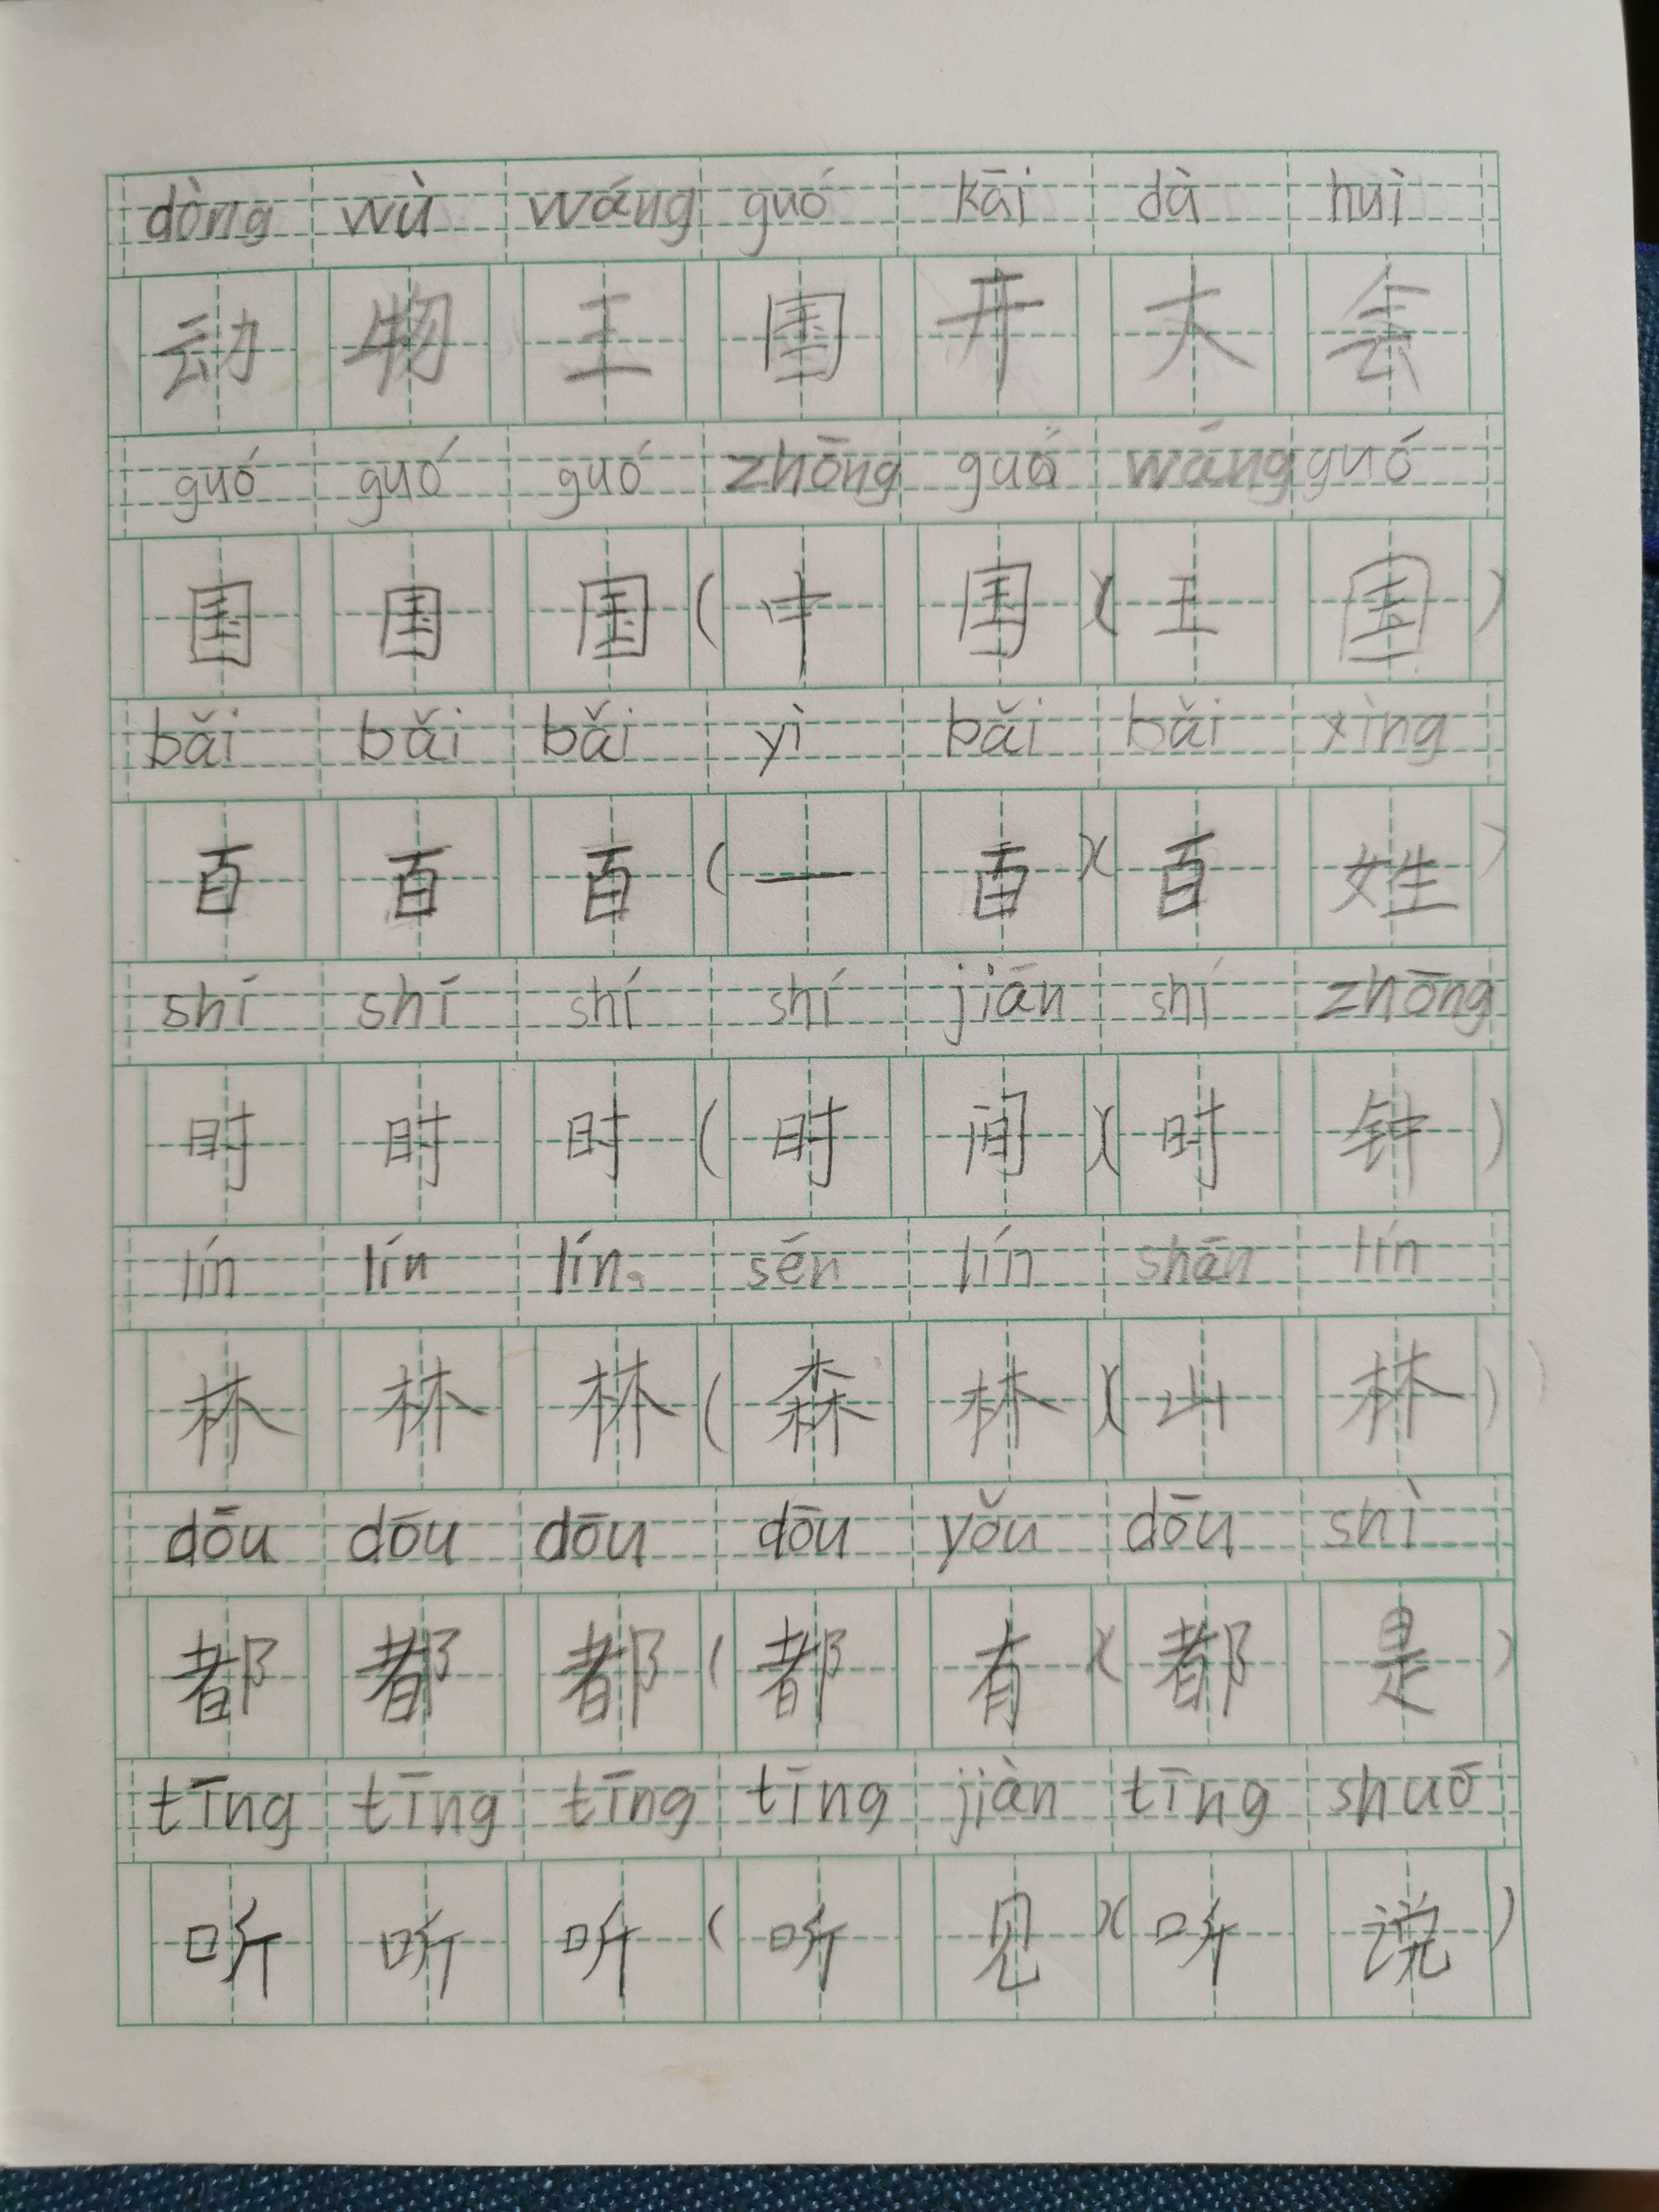 dòng wù wáng guó kāi dà huì
动物王国开大会
guó guó guó zhōng guó wáng guó
国国国(中国)(王国)
bǎi bǎi bǎi yì bǎi bǎi xìng
百百百(一百)(百姓)
shí shí shí shí jiān shí zhōng
时时时(时间)(时钟)
lín lín lín sēn lín shān lín
林林林(森林)(山林)
dōu dōu dōu dōu yǒu dōu shì
都都都(都有)(都是)
tīng tīng tīng tīng jiàn tīng shuō
听听听(听见)(听说)